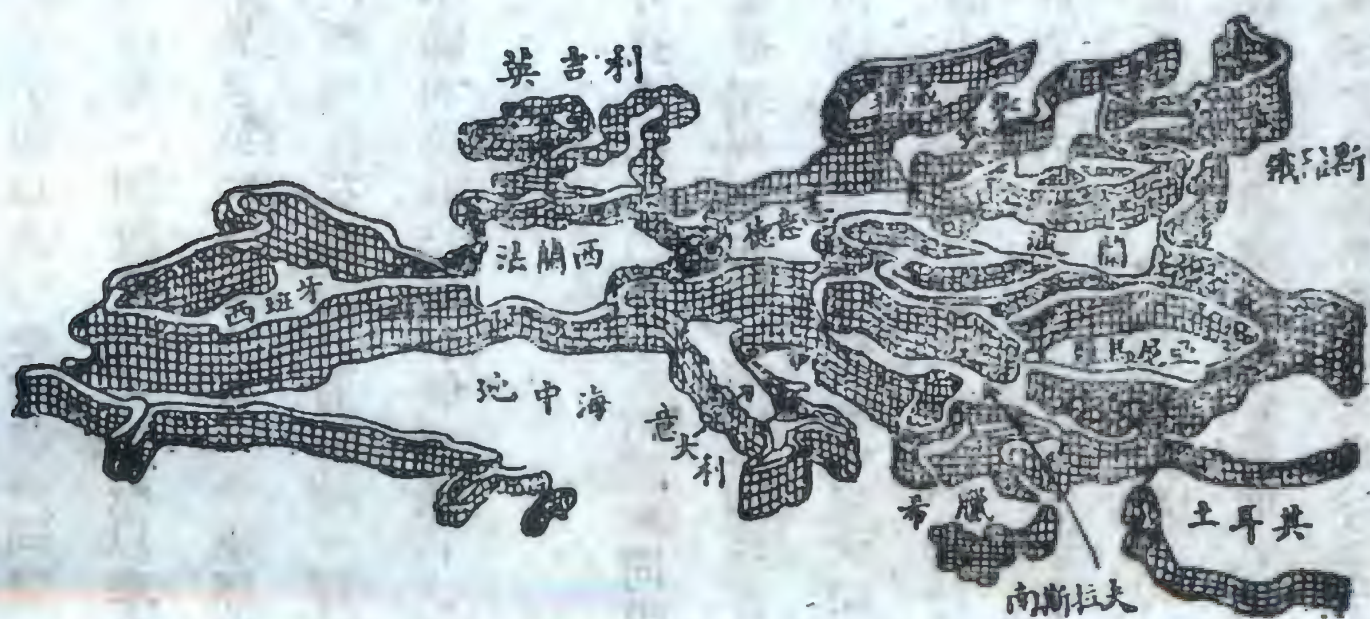 英吉利
俄羅斯
法蘭西
德意
波蘭
西班牙
羅馬尼亞
地中海
意大利
希臘
土耳其
南斯拉夫